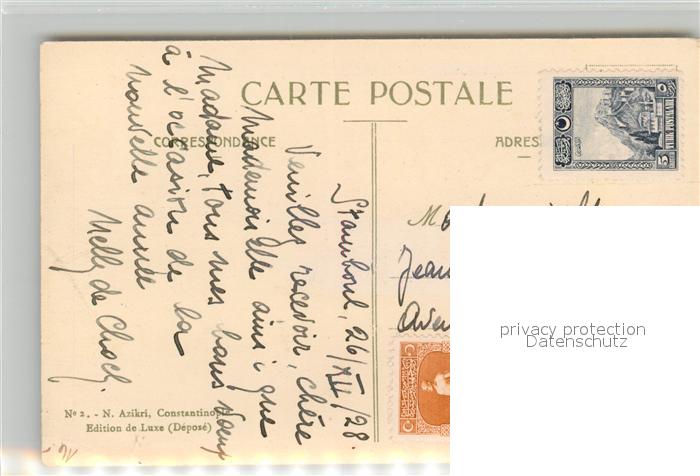 CARTE POSTALE
CORRESPONDANCE
ADRES
Stamboul, 26/XII/28.
Veuillez recevoir, chère
Mademoiselle ainsi que
Madame, tous mes bons vœux
à l'occasion de la
nouvelle année
Nelly de
Jean
Aven
5
5
TURK POSTALARI
privacy protection
Datenschutz
Nº 2. - N. Azikri, Constantinople
Edition de Luxe (Déposé)